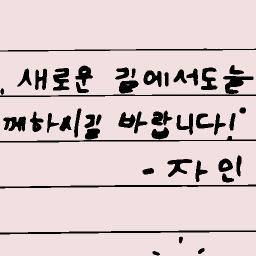 . 새로운 길에서도 늘
께하시길 바랍니다!
- 자인